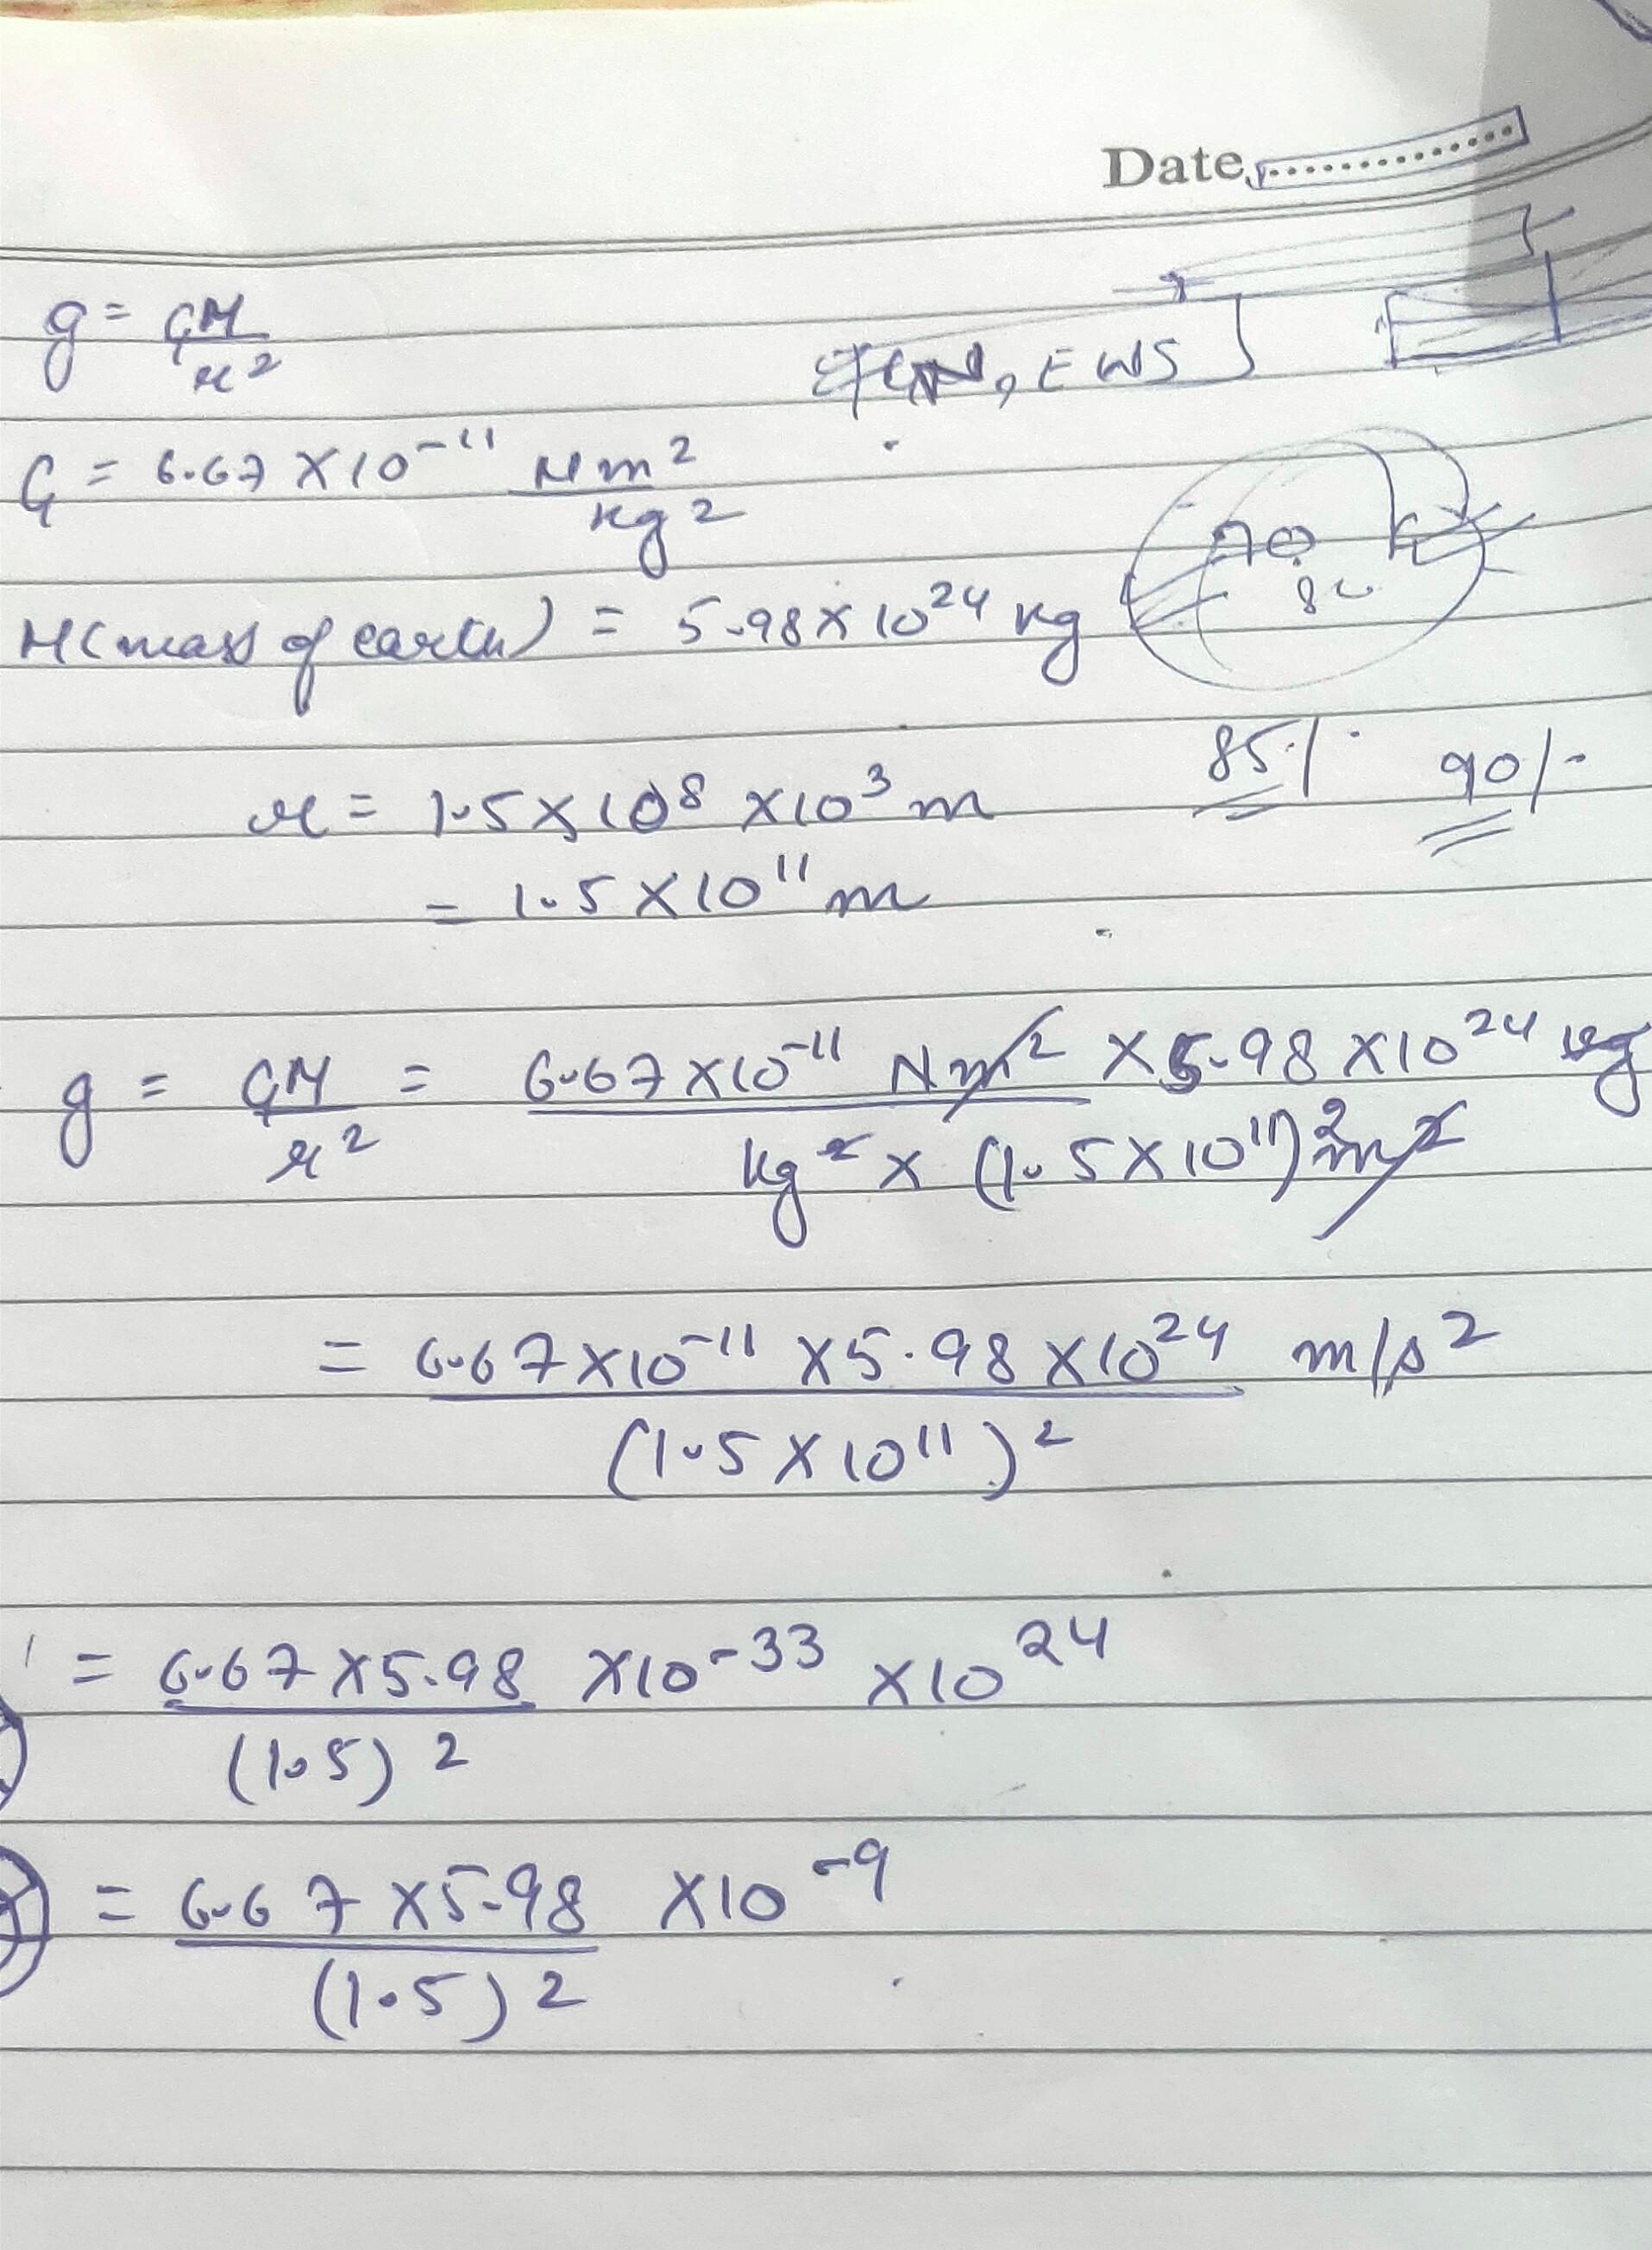 Date
g = GM
r²
EWS
G = 6.67 × 10⁻¹¹ Nm²
kg²
70
80
M (mass of earth) = 5.98 × 10²⁴ kg
85% 90%
r = 1.5 × 10⁸ × 10³ m
= 1.5 × 10¹¹ m
g = GM = 6.67 × 10⁻¹¹ Nm² × 5.98 × 10²⁴ kg
r² kg² × (1.5 × 10¹¹)² m²
= 6.67 × 10⁻¹¹ × 5.98 × 10²⁴ m/s²
(1.5 × 10¹¹)²
= 6.67 × 5.98 × 10⁻³³ × 10²⁴
(1.5)²
= 6.67 × 5.98 × 10⁻⁹
(1.5)²